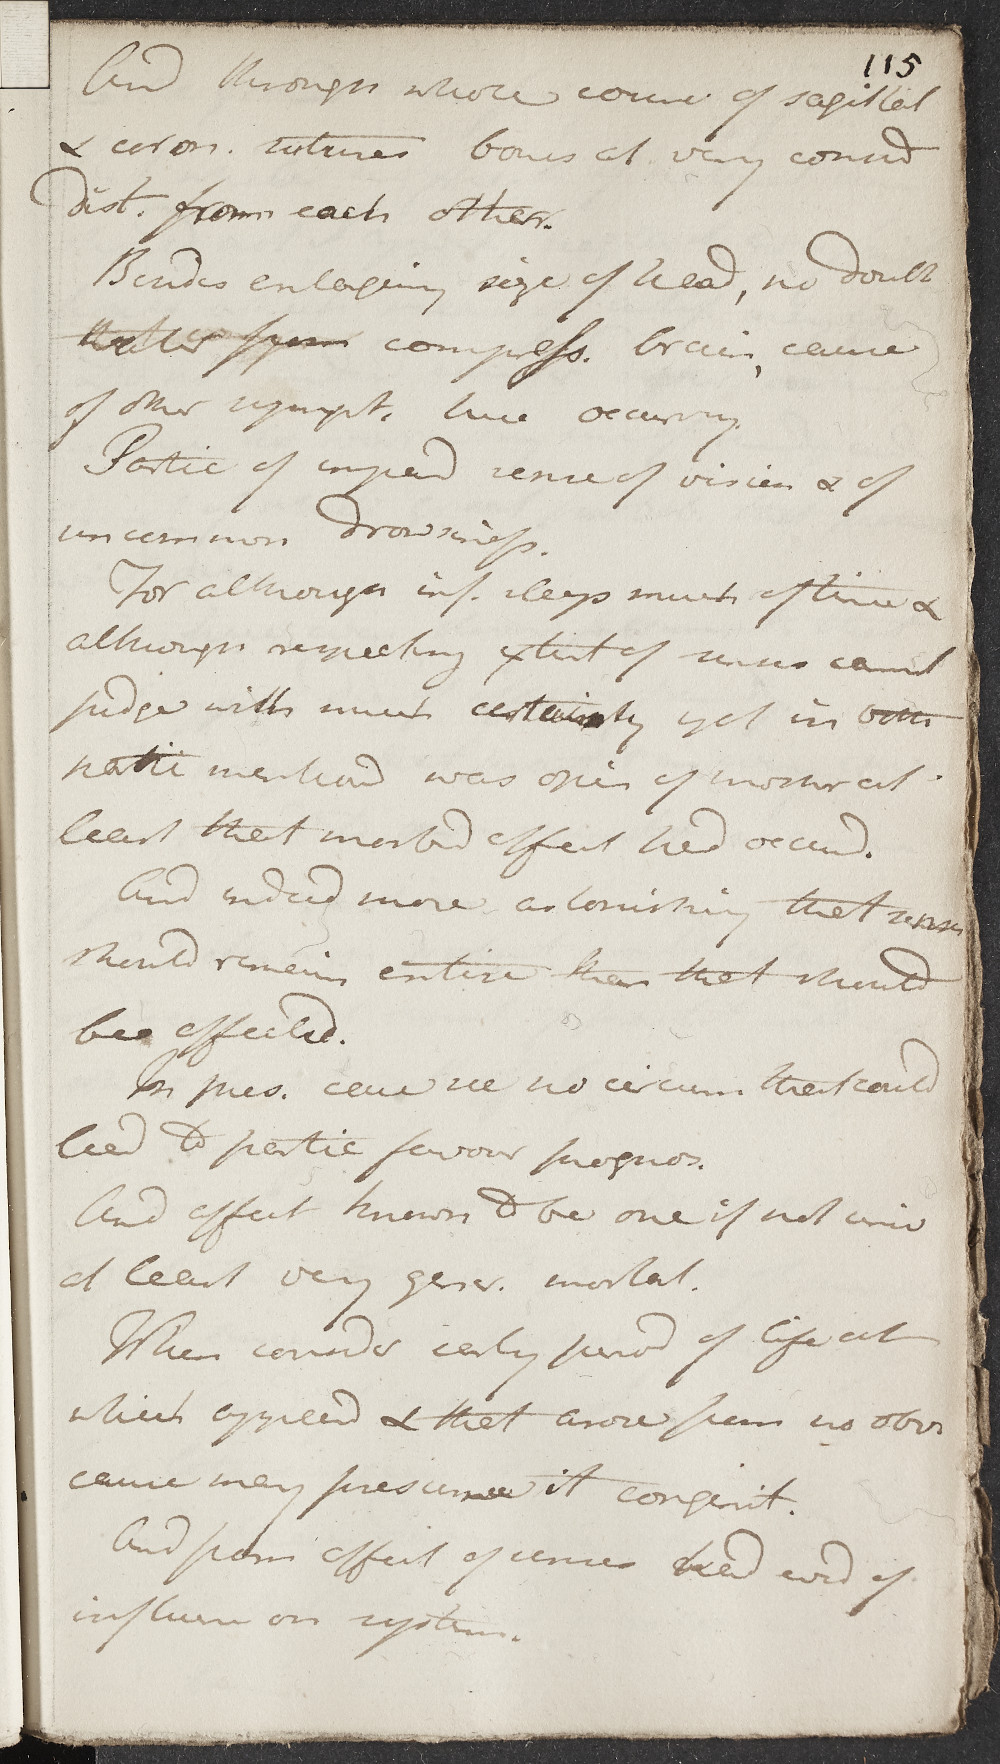 115
And through whole course of sagittal
& coron. sutures bones at very consid
dist. from each other.
Besides enlarging size of head, no doubt
water from compress. brain, cause
of other sympt. here occurring.
Partic of impaird sense of vision & of
uncommon drowsiness.
For although inf. sleeps much of time &
although respecting extent of senses cannot
judge with much certainty yet in both
partic mentiond was opin of mother at
least that morbid effect had occurd.
And indeed more astonishing that senses
should remain entire than that should
be affected.
In pres. case see no circum that could
lead to partic favour prognos.
And affect known to be one if not univ
at least very gener. mortal.
When consider early period of life at
which appeard & that arose from no obvi
cause may presume it congenit.
And from effect of senses had evid of
influen on system.